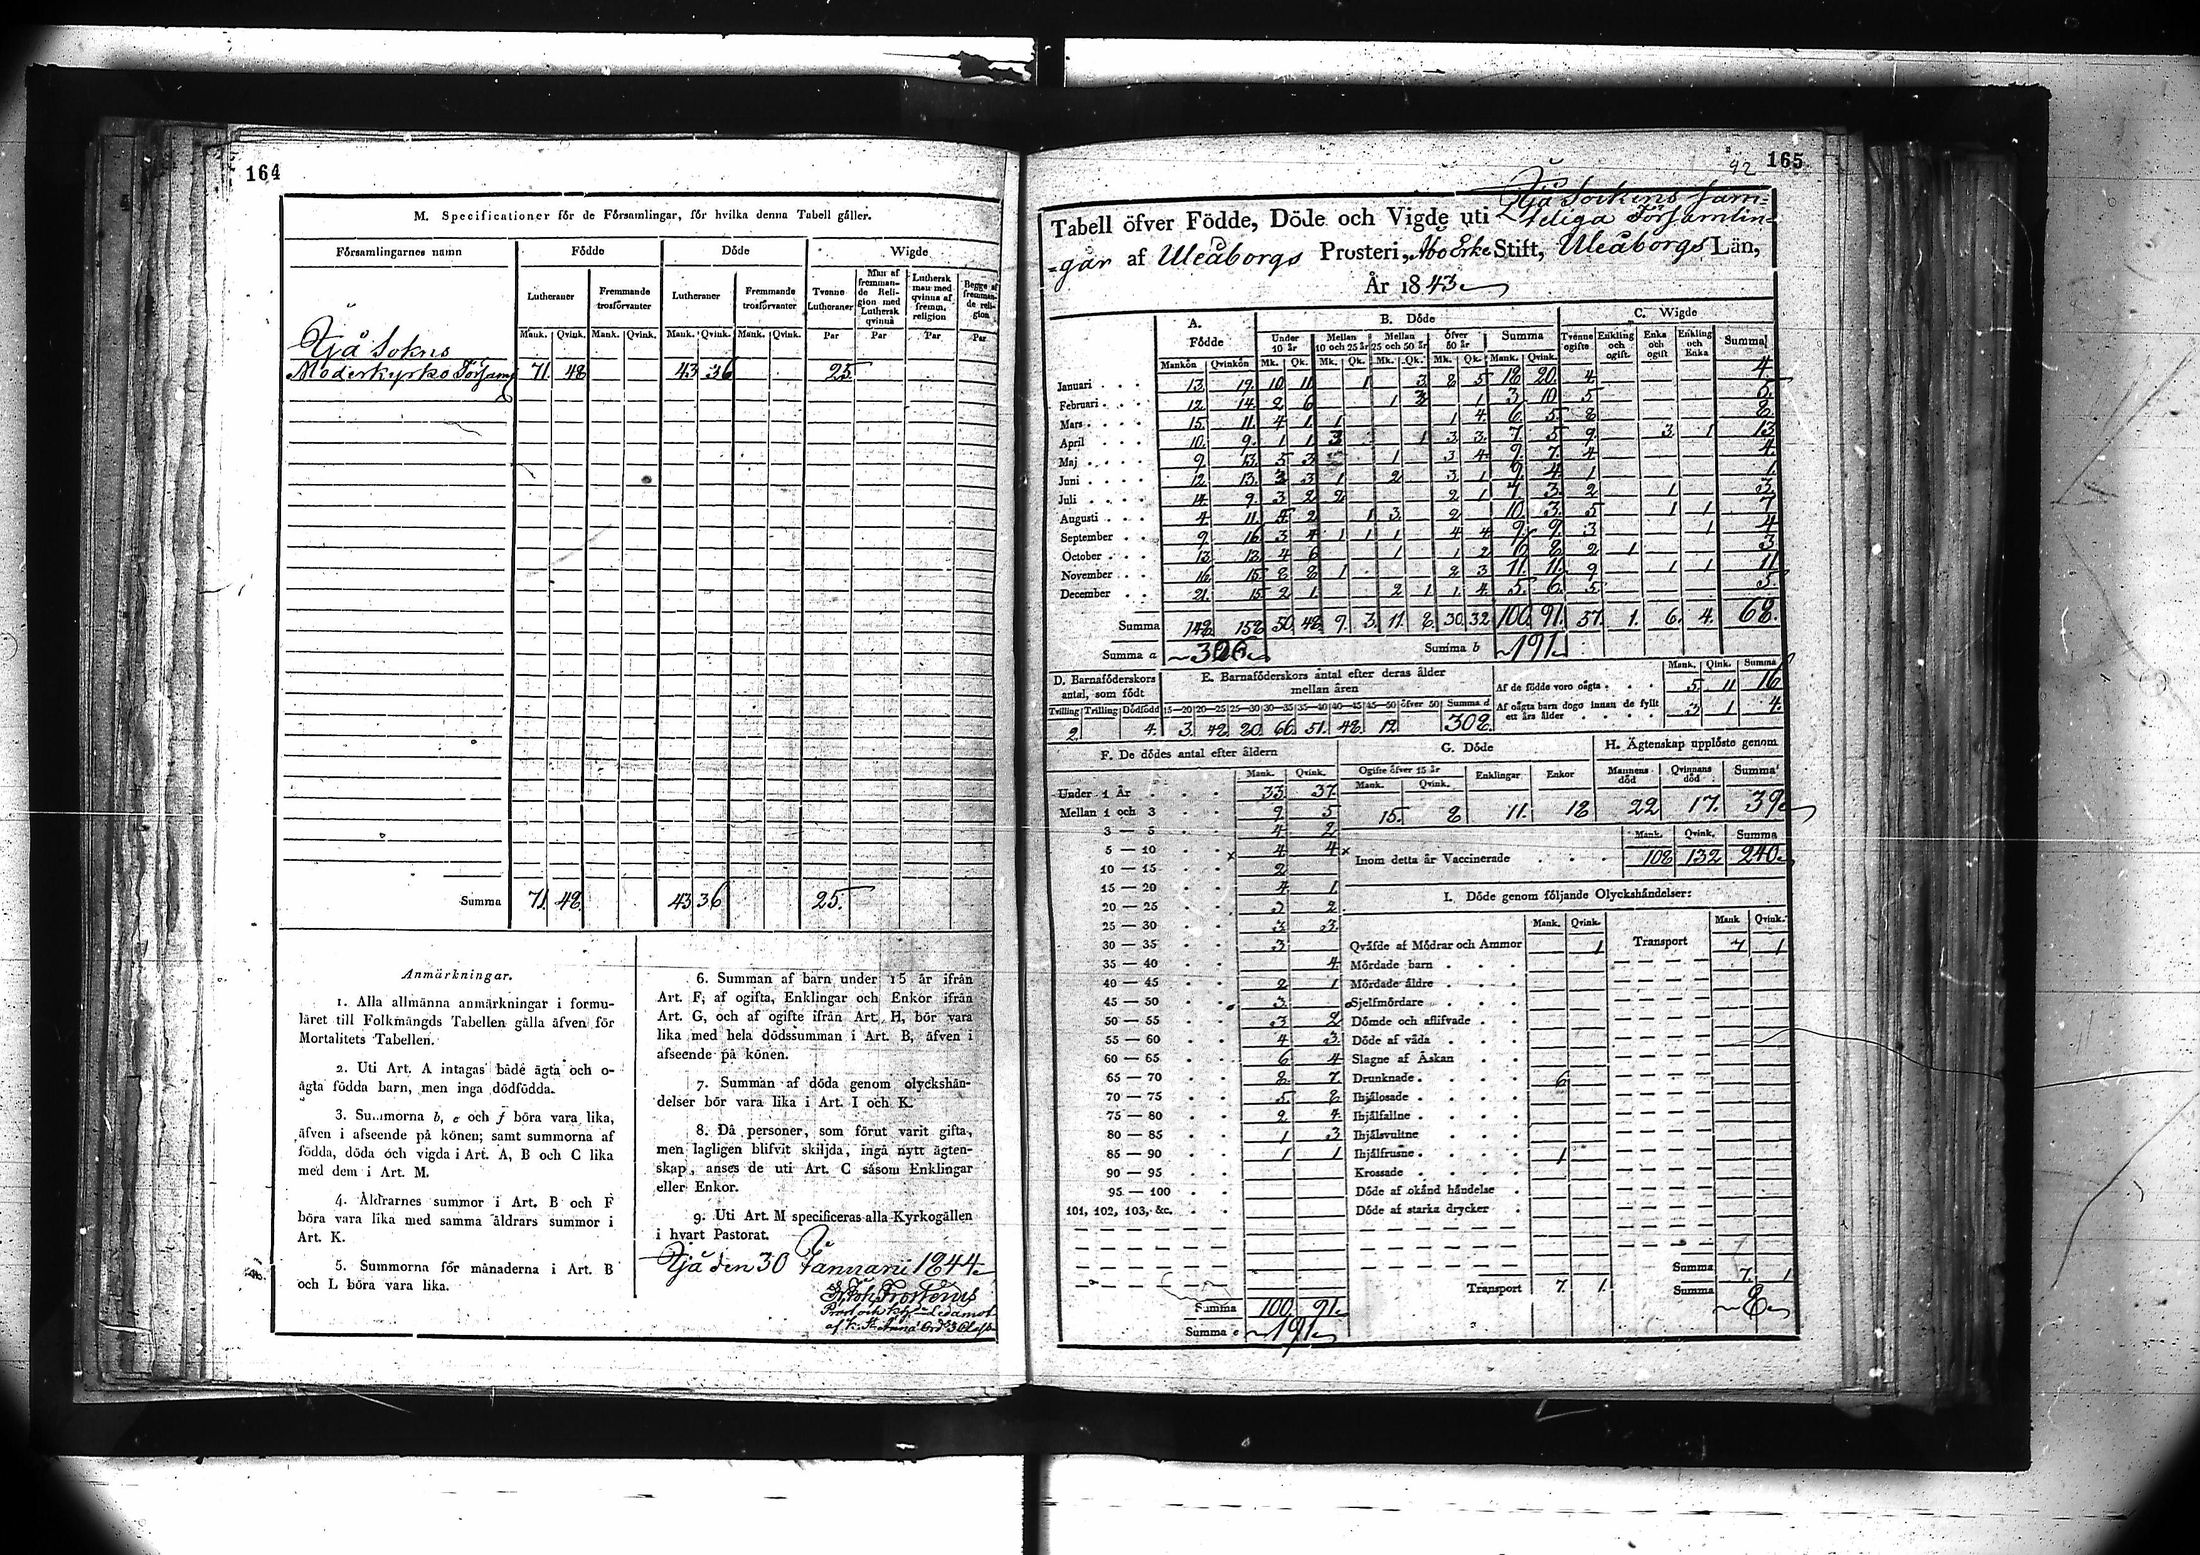 164
M. Specificationer för de Församlingar, för hvilka denna Tabell gäller.
Församlingarnes namn Födde Döde Wigde
Lutheraner Fremmande trosförvanter Lutheraner Fremmande trosförvanter Tvenne Lutheraner Man af fremmande Religion med Luthersk qvinna Luthersk man med qvinna af fremm. religion Begge af fremmande religion
Mank. Qvink. Mank. Qvink. Mank. Qvink. Mank. Qvink. Par Par Par Par
Ijå Sokns
Moderkyrko Församl 71. 48 43 36 25.
Summa 71. 48. 43 36 25.
Anmärkningar.
1. Alla allmänna anmärkningar i formu-
läret till Folkmängds Tabellen gälla äfven för
Mortalitets Tabellen.
2. Uti Art. A intagas både ägta och o-
ägta födda barn, men inga dödfödda.
3. Summorna b, e och f böra vara lika,
äfven i afseende på könen; samt summorna af
födda, döda och vigda i Art. A, B och C lika
med dem i Art. M.
4. Åldrarnes summor i Art. B och F
böra vara lika med samma åldrars summor i
Art. K.
5. Summorna för månaderna i Art. B
och L böra vara lika.
6. Summan af barn under 15 år ifrån
Art. F, af ogifta, Enklingar och Enkor ifrån
Art. G, och af ogifte ifrån Art. H, bör vara
lika med hela dödssumman i Art. B, äfven i
afseende på könen.
7. Summan af döda genom olyckshän-
delser bör vara lika i Art. I och K.
8. Då personer, som förut varit gifta,
men lagligen blifvit skiljda, ingå nytt ägten-
skap, anses de uti Art. C såsom Enklingar
eller Enkor.
9. Uti Art. M specificeras alla Kyrkogällen
i hvart Pastorat.
Ijå den 30 Januarii 1844
Joh Frosterus
Prost och Khde Ledamot
af K. St. Anna Ord. 3 Class
92 165
Tabell öfver Födde, Döde och Vigde uti Ijå Sockens sam-
teliga Församlin-
gar af Uleåborgs Prosteri, Åbo Erke Stift, Uleåborgs Län,
År 1843
A. Födde B. Döde C. Wigde
Under 10 år Mellan 10 och 25 år Mellan 25 och 50 år Öfver 50 år Summa Tvenne ogifte Enkling och ogift Enka och ogift Enkling och Enka Summa
Mankön Qvinkön Mk. Qk. Mk. Qk. Mk. Qk. Mk. Qk. Mank. Qvink.
Januari 13. 19. 10 11 1 3 8 5 18 20. 4. 4.
Februari 12. 14. 2 6 1 3 1 3 10 5 5.
Mars 15. 11. 4 1 1 1 4 6 5. 8 8
April 10. 9. 1 1 3 1 3 3. 7. 5 9. 3 1 13
Maj 9. 13. 5 3 1 3 4 9. 7. 4 4.
Juni 12. 13. 3 3 1 2 3 1 9. 4. 1 1.
Juli 14. 9. 3 2 2 2 1 7. 3. 2 1 3.
Augusti 4 11. 5 2 1 3. 2 10. 3. 5 1 1 7
September 9. 16 3 4 1 1 1 4 4 9. 9. 3 1 4
October 13. 13. 4 6 1 1 2 6 8 2 1 3
November 16. 15. 8 8 1 2 3 11. 11. 9 1 1 11
December 21. 15. 2 1 2 1 1 4 5. 6. 5 5
Summa 148 158 50 48 9. 3. 11. 8. 30. 32 100. 91. 57. 1. 6. 4. 68.
Summa a 306 Summa b 191
D. Barnaföderskors antal, som födt E. Barnaföderskors antal efter deras ålder mellan åren
Mank. Qink. Summa
Af de födde voro oägta 5. 11 16
Tvilling Trilling Dödfödd 15—20 20—25 25—30 30—35 35—40 40—45 45—50 öfver 50 Summa d
Af oägta barn dogo innan de fyllt ett års ålder 3 1 4.
2. 4. 3. 48. 80. 66. 51. 48. 12. 308.
F. De dödes antal efter åldern G. Döde H. Ägtenskap upplöste genom
Mank. Qvink. Ogifte öfver 15 år Enklingar Enkor Mannens död Qvinnans död Summa
Mank. Qvink.
Under 1 År 33 37.
Mellan 1 och 3 9. 5 15. 8 11. 18 22 17. 39
3 — 5 4 2
Mank. Qvink. Summa
5 — 10 4 4 Inom detta år Vaccinerade 108 132 240
10 — 15 2
15 — 20 4 1. I. Döde genom följande Olyckshändelser:
20 — 25 3 2.
25 — 30 3 3. Mank. Qvink. Mank Qvink.
30 — 35 3 Qväfde af Mödrar och Ammor 1 Transport 7 1
35 — 40 4. Mördade barn
40 — 45 2 1 Mördade äldre
45 — 50 3. Sjelfmördare
50 — 55 3 2 Dömde och aflifvade
55 — 60 4 3. Döde af våda
60 — 65 6 4 Slagne af Åskan
65 — 70 8. 7. Drunknade 6
70 — 75 5. 8 Ihjälosade
75 — 80 2 4. Ihjälfallne
80 — 85 1 3 Ihjälsvultne
85 — 90 1 1 Ihjälfrusne 1
90 — 95 Krossade
95 — 100 Döde af okänd händelse
101, 102, 103, &c. Döde af starka drycker
Summa 7. 1
Transport 7. 1. Summa 8
Summa 100 91.
Summa e 191